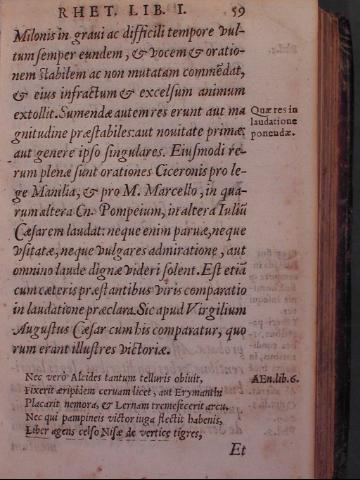 RHET. LIB. I. 59
Milonis in graui ac difficili tempore vul-
tum semper eundem, & vocem & oratio-
nem stabilem ac non mutatam commẽdat,
& eius infractum & excelsum animum
extollit. Sumendæ autem res erunt aut ma
gnitudine præstabiles: aut nouitate primæ:
aut genere ipso singulares. Eiusmodi re-
rum plenæ sunt orationes Ciceronis pro le-
ge Manilia, & pro M. Marcello, in qua-
rum altera Cn. Pompeium, in altera Iuliũ
Cæsarem laudat: neque enim paruæ, neque
vsitatæ, neque vulgares admiratione, aut
omnino laude dignæ videri solent. Est etiã
cum cæteris præstantibus viris comparatio
in laudatione præclara. Sic apud Virgilium
Augustus Cæsar cum his comparatur, quo
rum erant illustres victoriæ.
Nec verò Alcides tantum telluris obiuit,
Fixerit æripidem ceruam licet, aut Erymanthi
Placarit nemora, & Lernam tremefecerit arcu,
Nec qui pampineis victor iuga flectit habenis,
Liber agens celso Nisæ de vertice tigres,
Et
Quæ res in
laudatione
ponendæ.
AEn. lib. 6.